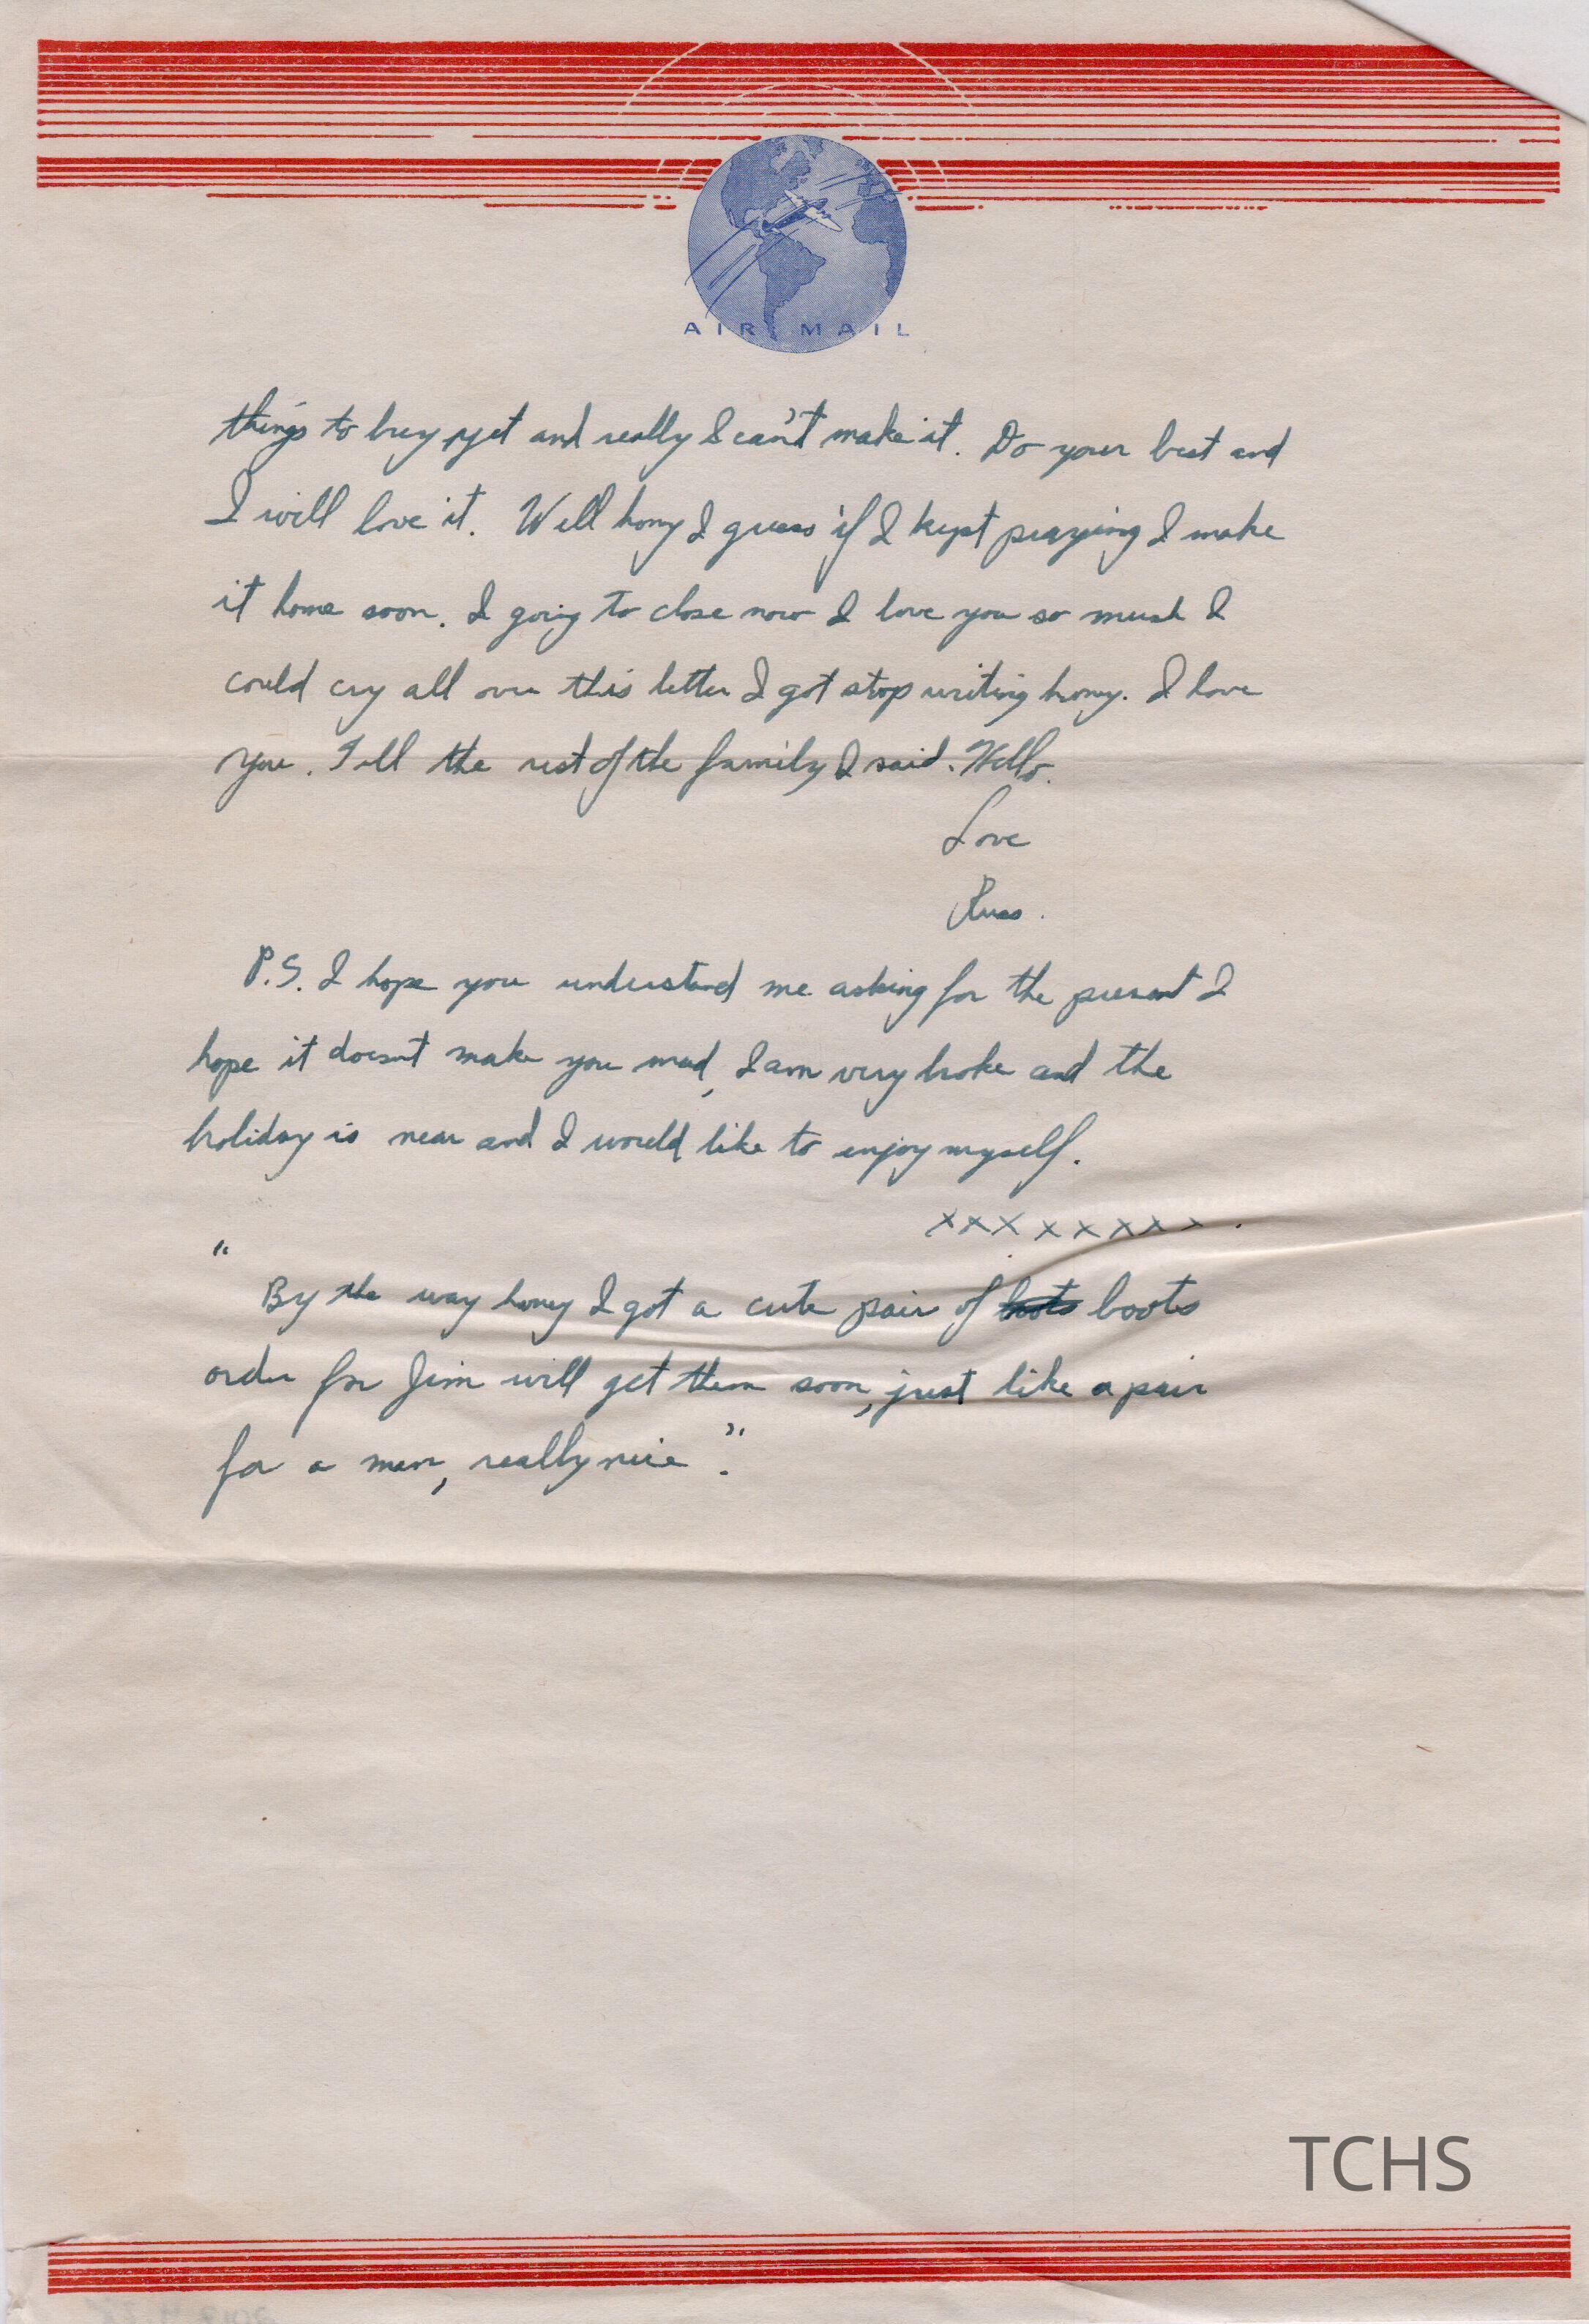 AIR MAIL
things to buy yet and really I can't make it. Do your best and
I will love it. Well hony I guess if I kept praying I make
it home soon. I going to close now I love you so mush I
could cry all over this letter I got stop writing hony. I love
you. Tell the rest of the family I said. Hello.
Love
Russ.
P.S. I hope you understand me asking for the present I
hope it doesnt make you mad, I am very broke and the
holiday is near and I would like to enjoy myself.
xxxxxxxx.
"
By the way honey I got a cute pair of boots boots
order for Jim will get them soon, just like a pair
for a man, really nice."
TCHS